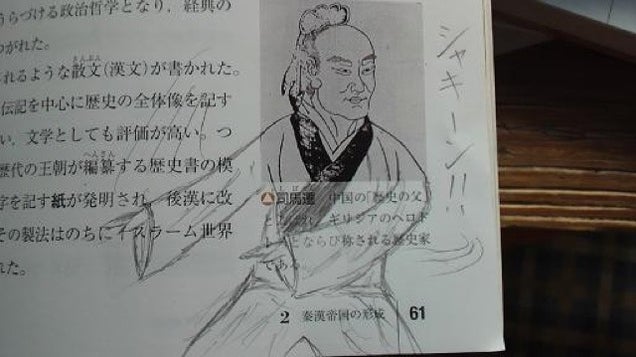 うらづける政治哲学となり，経典の
つがれた。
れるような散文(漢文)が書かれた。
さんぶん
伝記を中心に歴史の全体像を記す
い，文学としても評価が高い。つ
歴代の王朝が編纂する歴史書の模
へんさん
字を記す紙が発明され，後漢に改
その製法はのちにイスラーム世界
れた。
司馬遷 中国の「歴史の父」
ギリシアのヘロド
とならび称される歴史家
である
2 秦漢帝国の形成 61
シャキーン!!